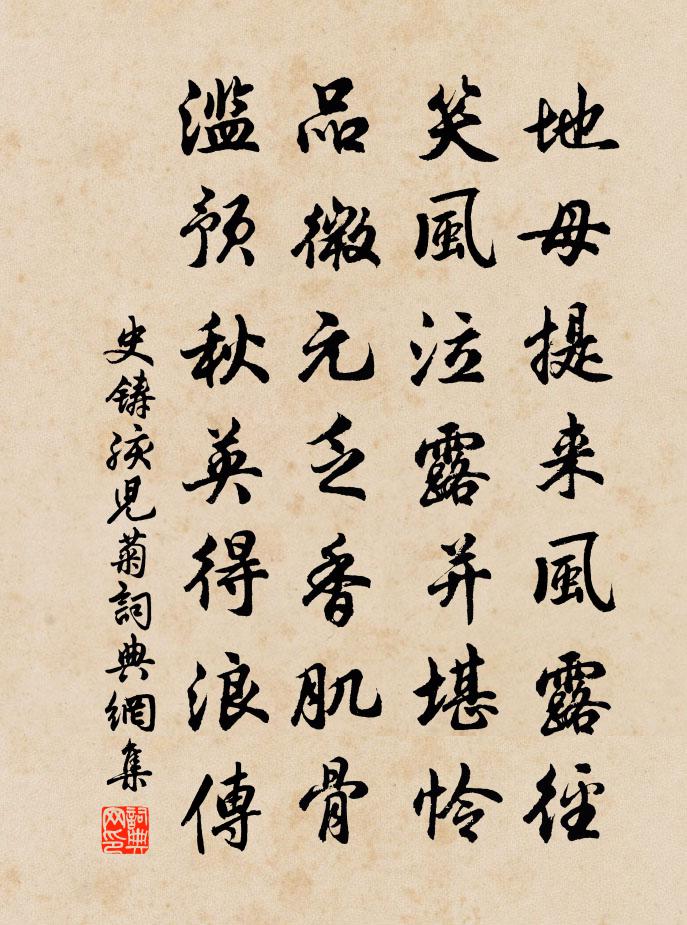 地母提来風露徑
笑風泣露并堪怜
品微元乏香肌骨
濫預秋英得浪傳
史鑄孩兒菊詞典網集
詞典网印